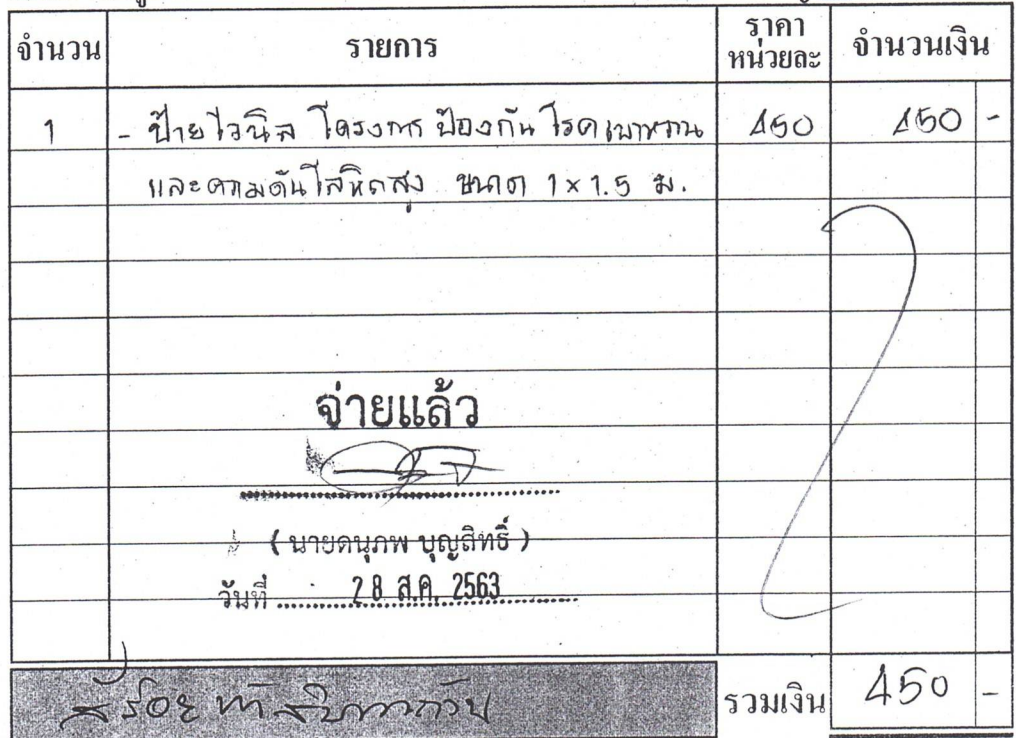 จำนวน รายการ ราคาหน่วยละ จำนวนเงิน
1 - ป้ายไวนิล โครงการ ป้องกัน โรคเบาหวาน 450 450 -
และความดันโลหิตสูง ขนาด 1 x 1.5 ม.
จ่ายแล้ว
( นายดนุภพ บุญสิทธิ์ )
วันที่ 28 ส.ค. 2563
สี่ร้อยห้าสิบบาทถ้วน รวมเงิน 450 -